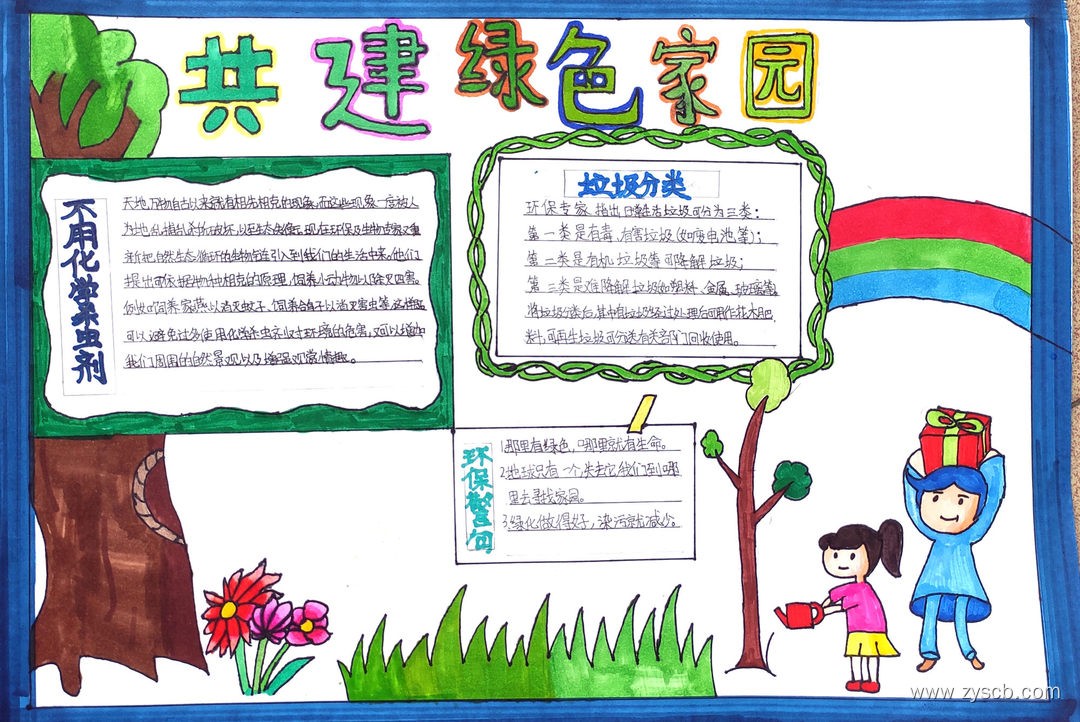 共建绿色家园
不用化学杀虫剂
天地万物自古以来就有相生相克的现象,而这些现象一度被人
为地乱捕乱杀所破坏,以至生态失衡。现在环保及生物专家又重
新把自然生态循环的生物链引入到我们的生活中来。他们
提出可依据物种相克的原理,饲养小动物以除灭四害。
例如饲养家燕以消灭蚊子、饲养鸽子以消灭害虫等,这样既
可以避免过多使用化学杀虫剂以对环境的危害,又可以增加
我们周围的自然景观以及增强观赏情趣。
垃圾分类
环保专家指出日常生活垃圾可分为三类:
第一类是有毒、有害垃圾(如废电池等);
第二类是有机垃圾等可降解垃圾;
第三类是难降解垃圾如塑料、金属、玻璃等,
将垃圾分类后,其中有垃圾经过处理后可用作花木肥
料,可再生垃圾可分送有关部门回收使用。
环保警句
1.哪里有绿色,哪里就有生命。
2.地球只有一个,失去它我们到哪
里去寻找家园。
3.绿化做得好,染污就减少。
www.zyscb.com